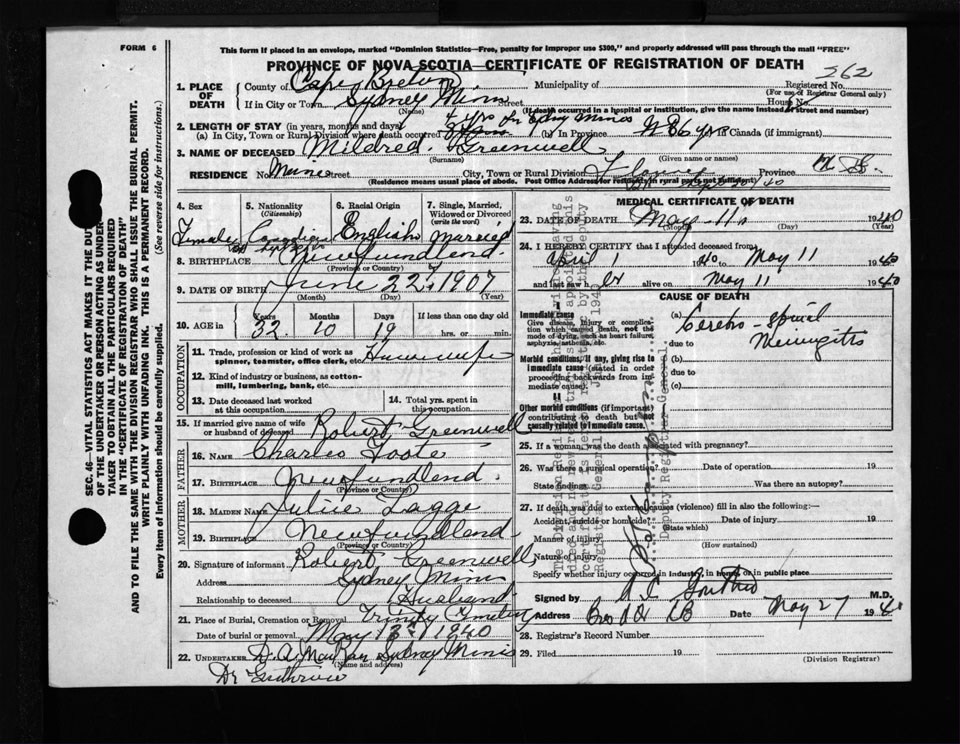 FORM 6
This form if placed in an envelope, marked "Dominion Statistics—Free, penalty for improper use $300," and properly addressed will pass through the mail "FREE"
PROVINCE OF NOVA SCOTIA—CERTIFICATE OF REGISTRATION OF DEATH
262
1. PLACE OF DEATH
County of Cape Breton Municipality of Registered No.
(For use of Registrar General only)
If in City or Town Sydney Mines Street House No.
(Name) (If death occurred in a hospital or institution, give the name instead of street and number)
2. LENGTH OF STAY (in years, months and days)
(a) In City, Town or Rural Division where death occurred (b) In Province Canada (if immigrant)
3. NAME OF DECEASED Mildred Greenwell
(Surname) (Given name or names)
RESIDENCE No. Street City, Town or Rural Division Province N.S.
(Residence means usual place of abode. Post Office Address for residents in rural parts not sufficient)
4. Sex
Female
5. Nationality
(Citizenship)
Canadian
6. Racial Origin
English
7. Single, Married, Widowed or Divorced
(write the word)
Married
8. BIRTHPLACE Newfoundlend
(Province or Country)
9. DATE OF BIRTH June 22, 1907
(Month) (Day) (Year)
10. AGE in Years Months Days If less than one day old
32 10 19 hrs. or min.
OCCUPATION
11. Trade, profession or kind of work as spinner, teamster, office clerk, etc. Housewife
12. Kind of industry or business, as cotton-mill, lumbering, bank, etc.
13. Date deceased last worked at this occupation
14. Total yrs. spent in this occupation
15. If married give name of wife or husband of deceased Robert Greenwell
FATHER
16. NAME Charles Foote
17. BIRTHPLACE Newfundlend.
(Province or Country)
MOTHER
18. MAIDEN NAME Julia
19. BIRTHPLACE Newfundlland
(Province or Country)
20. Signature of informant Robert Greenwell
Address Sydney Mines
Relationship to deceased Husband
21. Place of Burial, Cremation or Removal Trinity Cemetery
Date of burial or removal May 13th 1940
22. UNDERTAKER D. A. MacRae Sydney Mines
(Name and address)
MEDICAL CERTIFICATE OF DEATH
23. DATE OF DEATH May 11 1940
(Month) (Day) (Year)
24. I HEREBY CERTIFY that I attended deceased from
April 1 1940 to May 11 1940
and last saw her alive on May 11 1940
CAUSE OF DEATH
Immediate cause
Give disease, injury or complication which caused death, not the mode of dying, such as heart failure, asphyxia, asthenia, etc.
(a) Cerebro-spinal Meningitis
due to
Morbid conditions, if any, giving rise to immediate cause (stated in order proceeding backwards from immediate cause).
(b)
due to
(c)
Other morbid conditions (if important) contributing to death but not causally related to immediate cause.
25. If a woman, was the death associated with pregnancy?
26. Was there a surgical operation? Date of operation 19
State findings Was there an autopsy?
27. If death was due to external causes (violence) fill in also the following:—
Accident, suicide or homicide? Date of injury 19
(State which)
Manner of injury
(How sustained)
Nature of injury
Specify whether injury occurred in industry, in home, or in public place
Signed by M.D.
Address Date May 27 1940
28. Registrar's Record Number
29. Filed 19
(Division Registrar)
SEC. 46—VITAL STATISTICS ACT MAKES IT THE DUTY OF THE UNDERTAKER OR PERSON ACTING AS UNDERTAKER TO OBTAIN ALL THE PARTICULARS REQUIRED IN THE "CERTIFICATE OF REGISTRATION OF DEATH" AND TO FILE THE SAME WITH THE DIVISION REGISTRAR WHO SHALL ISSUE THE BURIAL PERMIT.
WRITE PLAINLY WITH UNFADING INK. THIS IS A PERMANENT RECORD.
Every item of Information should be carefully supplied. (See reverse side for instructions.)
Deputy Registrar General.